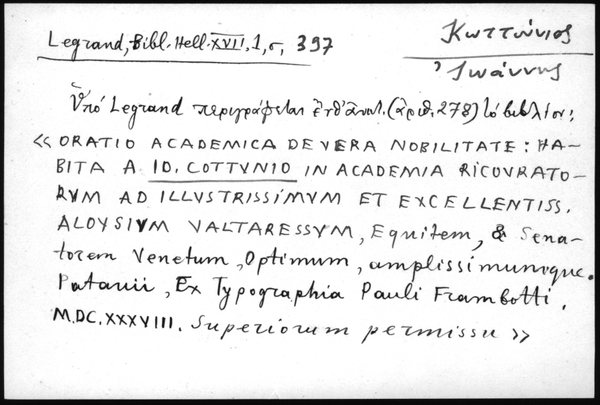 Legrand, Bibl. Hell. XVII, 1, σ, 397
Κωττώνιος
Ἰωάννης
Ὑπό Legrand περιγράφεται ἐνθ' ἀνωτ. (ἀριθ. 278) τό βιβλίον:
« ORATIO ACADEMICA DE VERA NOBILITATE: HA-
BITA A IO. COTTVNIO IN ACADEMIA RICOVRATO-
RVM AD ILLVSTRISSIMVM ET EXCELLENTISS.
ALOYSIVM VALTARESSVM, Equitem, & Sena-
torem Venetum, Optimum, amplissimumque.
Patavii, Ex Typographia Pauli Frambotti.
M.DC.XXXVIII. Superiorum permissu »